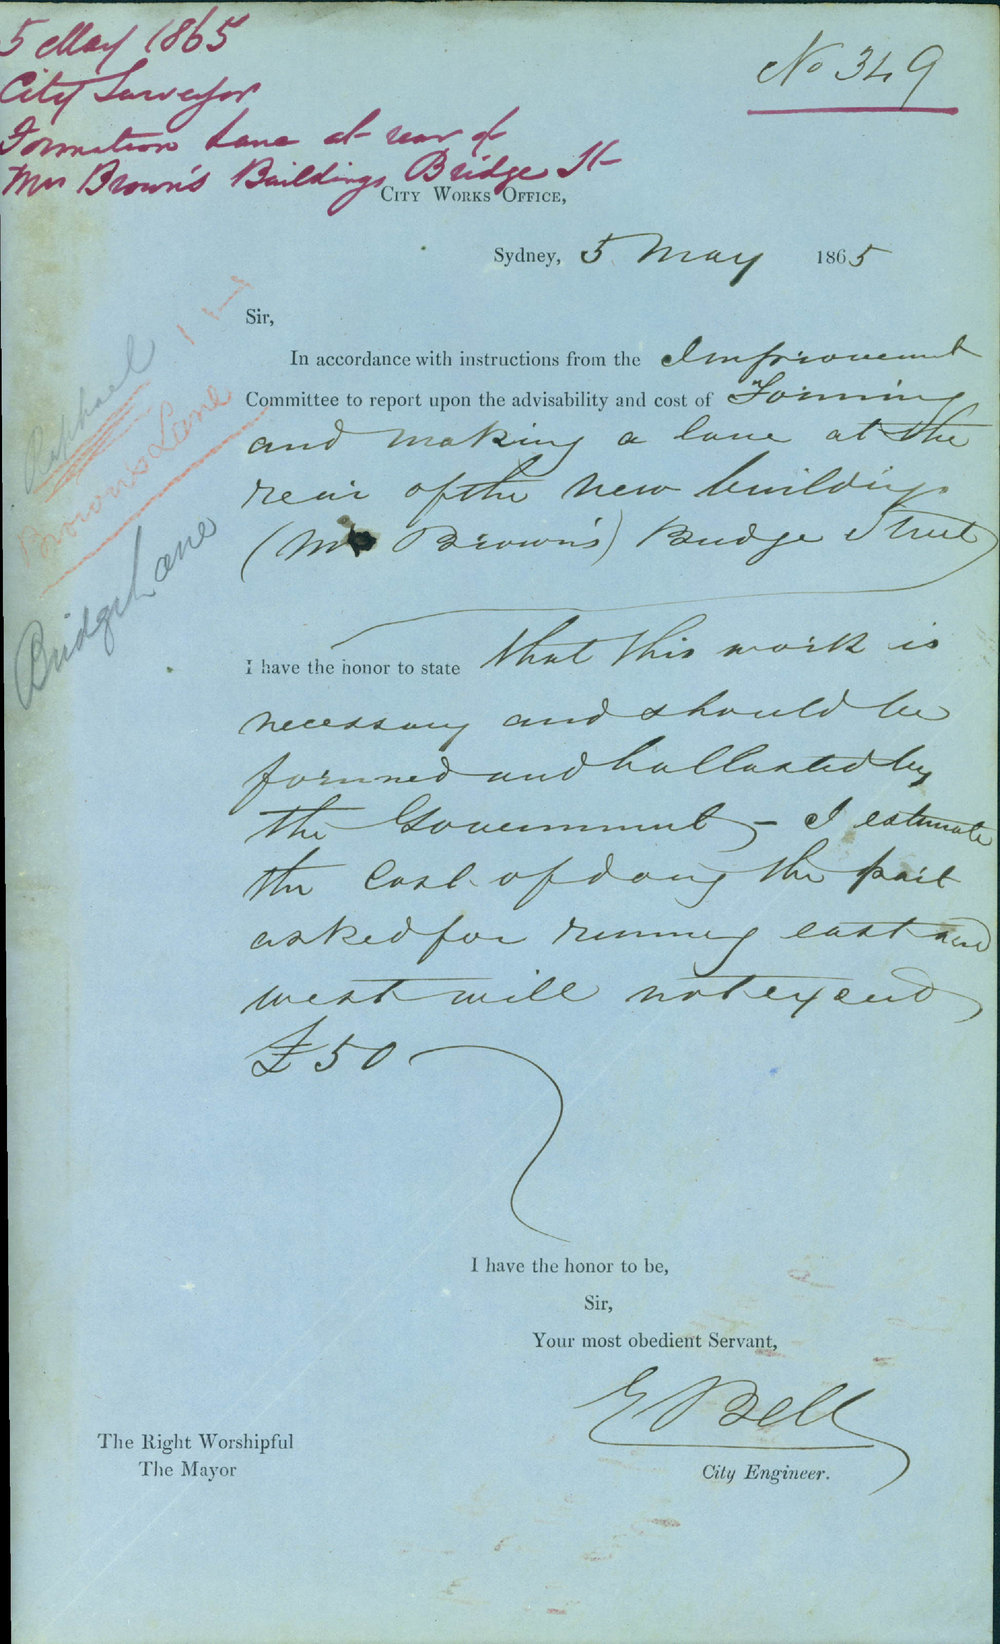 5 May 1865
City Surveyor
Formation Lane at rear of
Mrs Brown's Buildings Bridge St
No 349
City Works Office,
Sydney, 5 May 1865
Sir,
In accordance with instructions from the Improvement
Committee to report upon the advisability and cost of "Forming
and making a lane at the
rear of the new buildings
(Mrs Brown's) Bridge Street
Raphael
Brown's Lane
Bridge Lane
I have the honor to state that this work is
necessary and should be
formed and ballasted by
the Government – I estimate
the cost of doing the part
asked for running east and
west will not exceed
£50
I have the honor to be,
Sir,
Your most obedient Servant,
E Bell
City Engineer.
The Right Worshipful
The Mayor